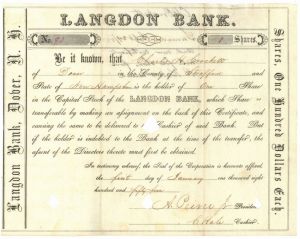 LANGDON BANK.
No. Shares.
Be it known, that Charles A.
of Dover in the County of Strafford and
State of New Hampshire is the holder of One Share
in the Capital Stock of the LANGDON BANK, which Share is
transferable by making an assignment on the back of this Certificate, and
causing the same to be delivered to the Cashier of said Bank. But
if the holder is indebted to the Bank at the time of the transfer, the
assent of the Directors thereto must first be obtained.
In testimony whereof the Seal of the Corporation is hereunto affixed,
the first day of January one thousand
eight hundred and fifty
A. Peirce Jr President.
Cashier.
Langdon Bank, Dover, N. H.
Shares, One Hundred Dollars Each.